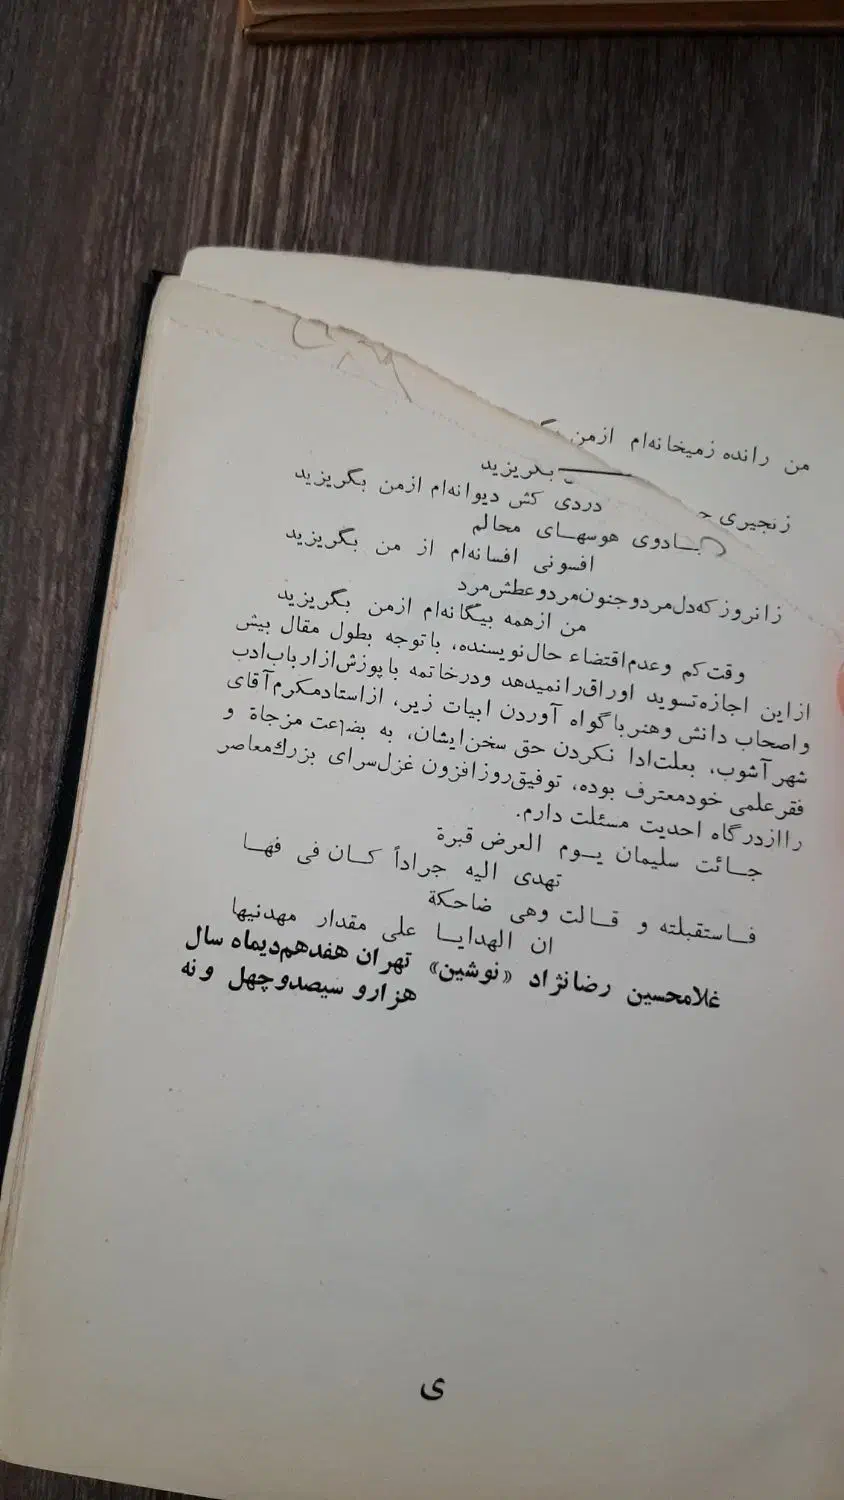 من رانده زمیخانه‌ام ازمن
بگریزید
زنجیری
دردی کش دیوانه‌ام ازمن بگریزید
جادوی هوسهای محالم
افسونی افسانه‌ام از من بگریزید
زانروز که‌دل‌مردو جنون‌مردو عطش‌مرد
من ازهمه بیگانه‌ام ازمن بگریزید
وقت‌کم وعدم‌اقتضاء حال‌نویسنده، باتوجه بطول مقال بیش
ازاین اجازه‌تسوید اوراق‌رانمیدهد ودرخاتمه باپوزش‌ازارباب‌ادب
واصحاب دانش وهنرباگواه آوردن ابیات زیر، ازاستادمکرم‌آقای
شهرآشوب، بعلت‌ادا نکردن حق سخن‌ایشان، به بضاعت مزجاة و
فقرعلمی خودمعترف بوده، توفیق‌روزافزون غزل‌سرای بزرك‌معاصر
راازدرگاه احدیت مسئلت دارم.
جائت سلیمان یوم العرض قبرة
تهدی الیه جراداً کان فی فها
فاستقبلته و قالت وهی ضاحکة
ان الهدایا علی مقدار مهدنیها
غلامحسین رضانژاد «نوشین» تهران هفدهم‌دیماه سال
هزارو سیصدوچهل ونه
ی